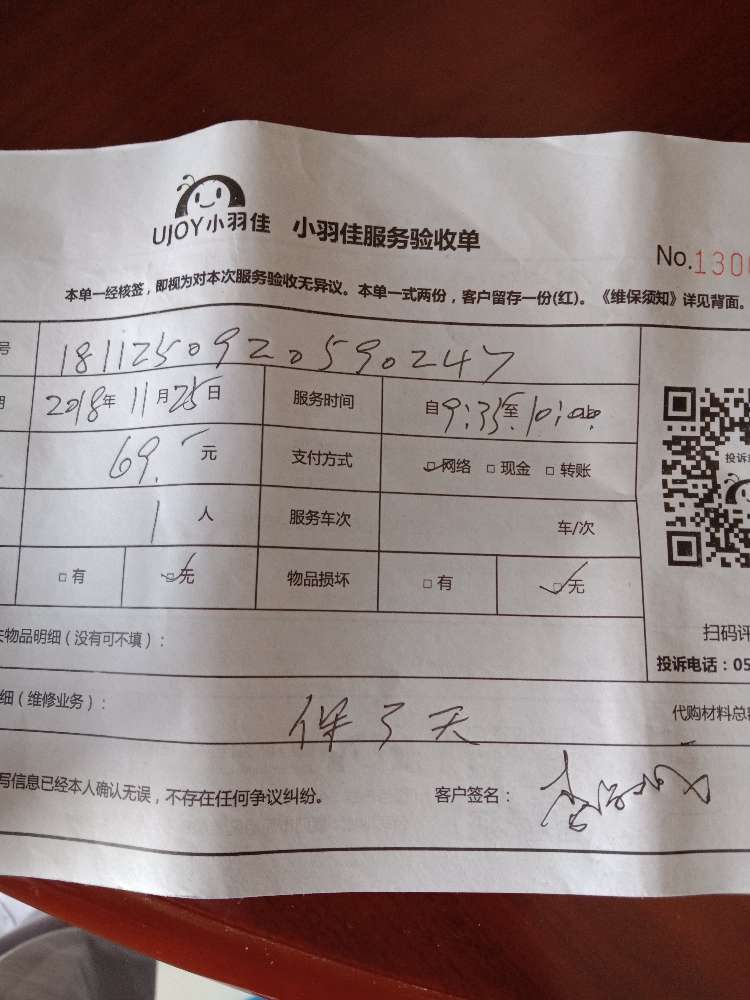 UJOY小羽佳 小羽佳服务验收单
No.130
本单一经核签，即视为对本次服务验收无异议。本单一式两份，客户留存一份(红)。《维保须知》详见背面。
号 1811250920590247
期 2018年11月25日 服务时间 自9:35至10:00
69.- 元 支付方式 ☑网络 □现金 □转账
1 人 服务车次 车/次
□有 ☑无 物品损坏 □有 ☑无
投诉
扫码评
物品明细（没有可不填）：
投诉电话：05
细（维修业务）： 保7天
代购材料总
写信息已经本人确认无误，不存在任何争议纠纷。 客户签名：